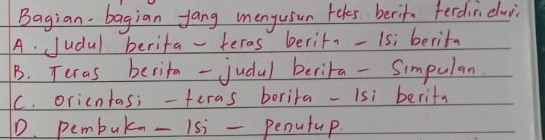 Bagian-bagian yang menyusun teks berita terdiri dari.
A. Judul berita - teras berita - Isi berita
B. Teras berita - judul berita - Simpulan.
C. orientasi - teras berita - Isi berita
D. pembuka - Isi - penutup.